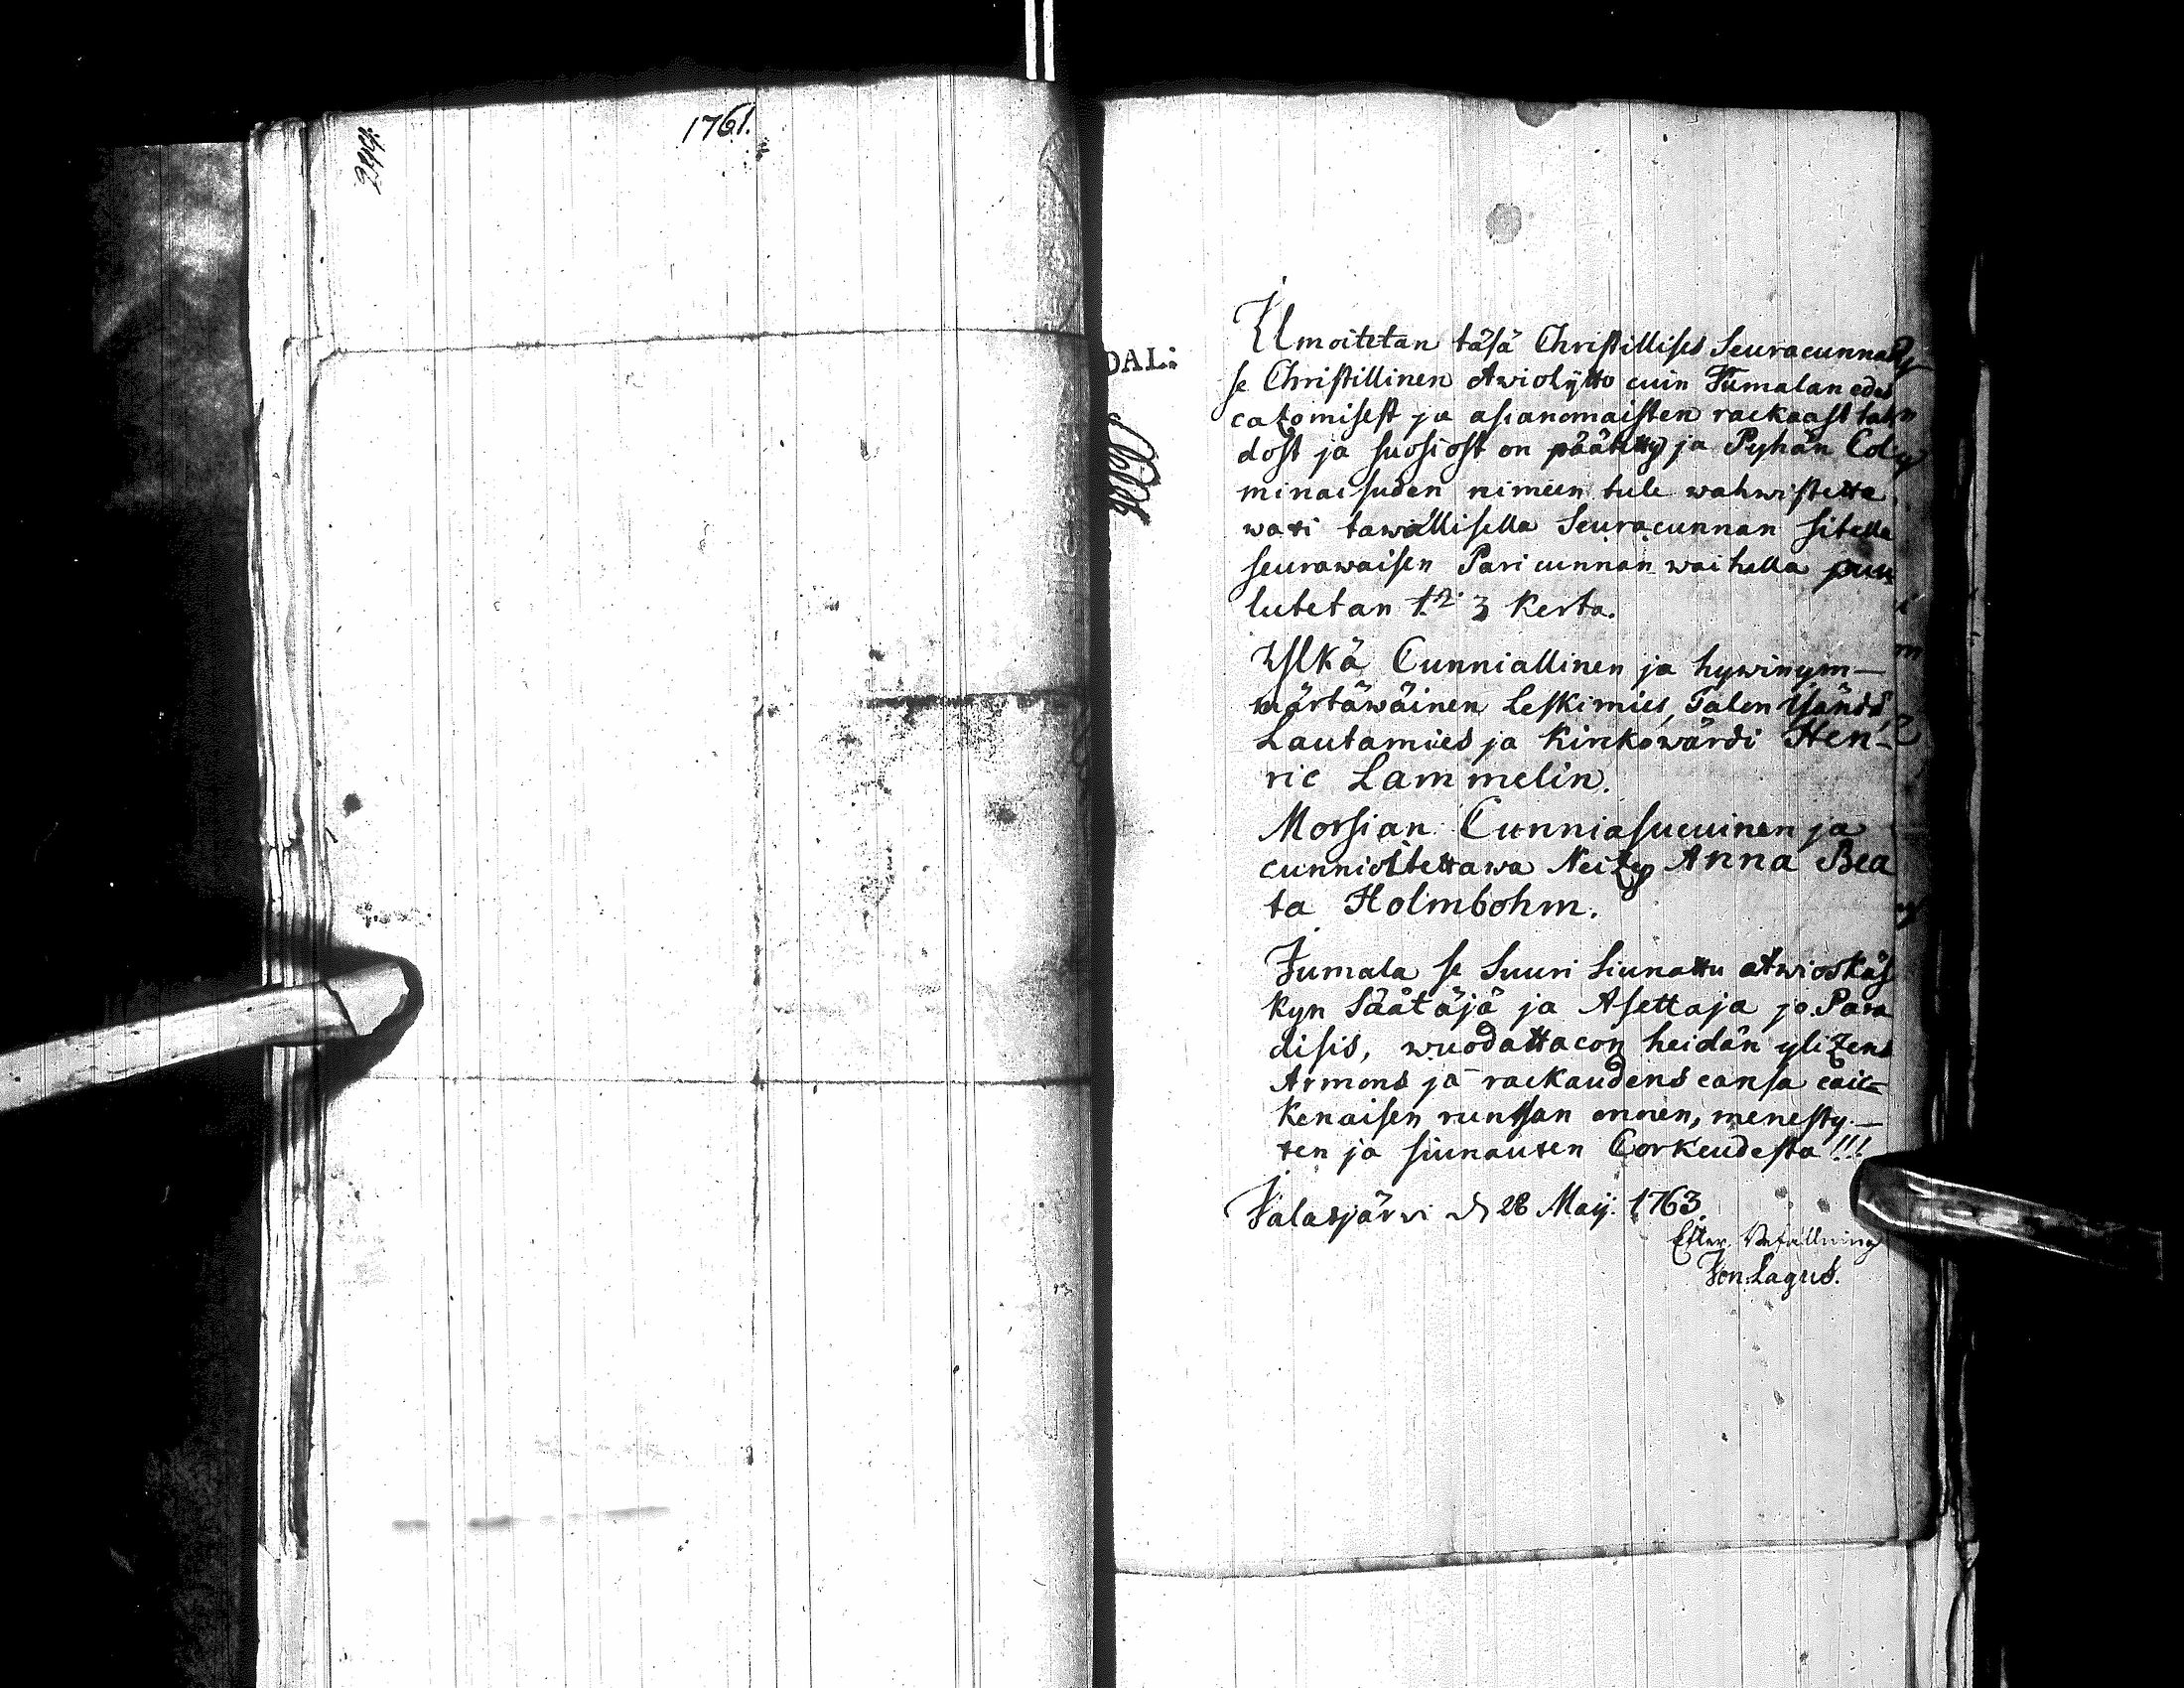 244.
1761.
DAL:
Ilmoitetan täsä Christillises Seuracunnas
se Christillinen Awiolijtto cuin Jumalan edes
cazomisest ja asianomaisten rackaast tah
dost ja suosiost on päätetty ja Pyhän Col
minaisuden nimeen tule wahwistetta
waxi tawallisella Seuracunnan sitella
seurawaisen Paricunnan waihella puu
lutetan 1. 2. 3 Kerta.
Ylkä Cunniallinen ja hywinym-
märtäwäinen Leskimies, Talon Isändä,
Lautamies ja Kirckowärdi Hen-
ric Lammelin.
Morsian Cunniasucuinen ja
cunnioitettawa Neizy Anna Bea
ta Holmbohm.
Jumala se Suuri Siunattu Awioskäs
kyn Säätäjä ja Asettaja jo Para
disis, wuodattacon heidän ylizens
Armons ja rackaudens cansa caic-
kenaisen runsan onnen, menesty-
xen ja siunauxen Corkeudesta!!!
Jalasjärwi d 28 Maij. 1763.
Efter Befallning
Jon. Lagus.